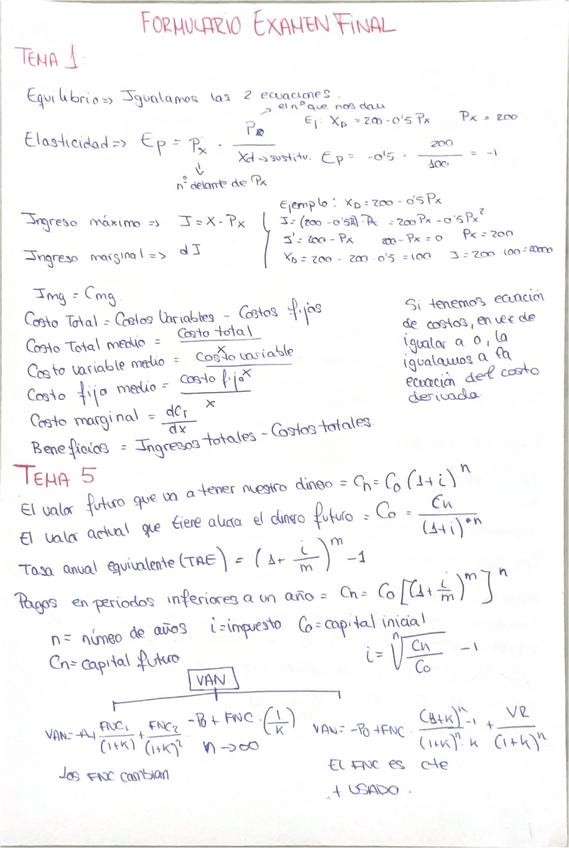 FORMULARIO EXAMEN FINAL
TEMA 1:
Equilibrio => Igualamos las 2 ecuaciones.
→ el nº que nos dan
Elasticidad => Ep = Px · Px / Xd → sustitu.
Ej: XD = 200 - 0'5 Px   Px = 200
Ep = -0'5 · 200/100 = -1
↓
nº delante de Px
Ingreso máximo => I = X · Px
Ingreso marginal => dI
Ejemplo: XD = 200 - 0'5 Px
I = (200 - 0'5Px) · Px = 200 Px - 0'5 Px²
I' = 200 - Px   200 - Px = 0   Px = 200
XD = 200 - 200 · 0'5 = 100   I = 200 · 100 = 20000
Img = Cmg
Costo Total = Costos Variables - Costos fijos
Costo Total medio = Costo total / x
Costo variable medio = costo variable / x
Costo fijo medio = costo fijo / x
Costo marginal = dCT / dx
Beneficios = Ingresos totales - Costos totales
Si tenemos ecuación
de costos, en vez de
igualar a 0, la
igualamos a la
ecuación del costo
derivada
TEMA 5
El valor futuro que va a tener nuestro dinero = Cn = C0 (1+i)^n
El valor actual que tiene ahora el dinero futuro = C0 = Cn / (1+i)^n
Tasa anual equivalente (TAE) = (1 + i/m)^m - 1
Pagos en periodos inferiores a un año = Cn = C0 [(1 + i/m)^m]^n
n = número de años   i = impuesto   C0 = capital inicial
Cn = capital futuro   i = ⁿ√(Cn / C0) - 1
VAN
VAN = -A + FNC1/(1+K) + FNC2/(1+K)²
los FNC cambian
-P0 + FNC · (1/K)
n → ∞
VAN = -P0 + FNC · ((1+K)^n - 1) / ((1+K)^n · K) + VR / (1+K)^n
El FNC es cte
+ USADO.